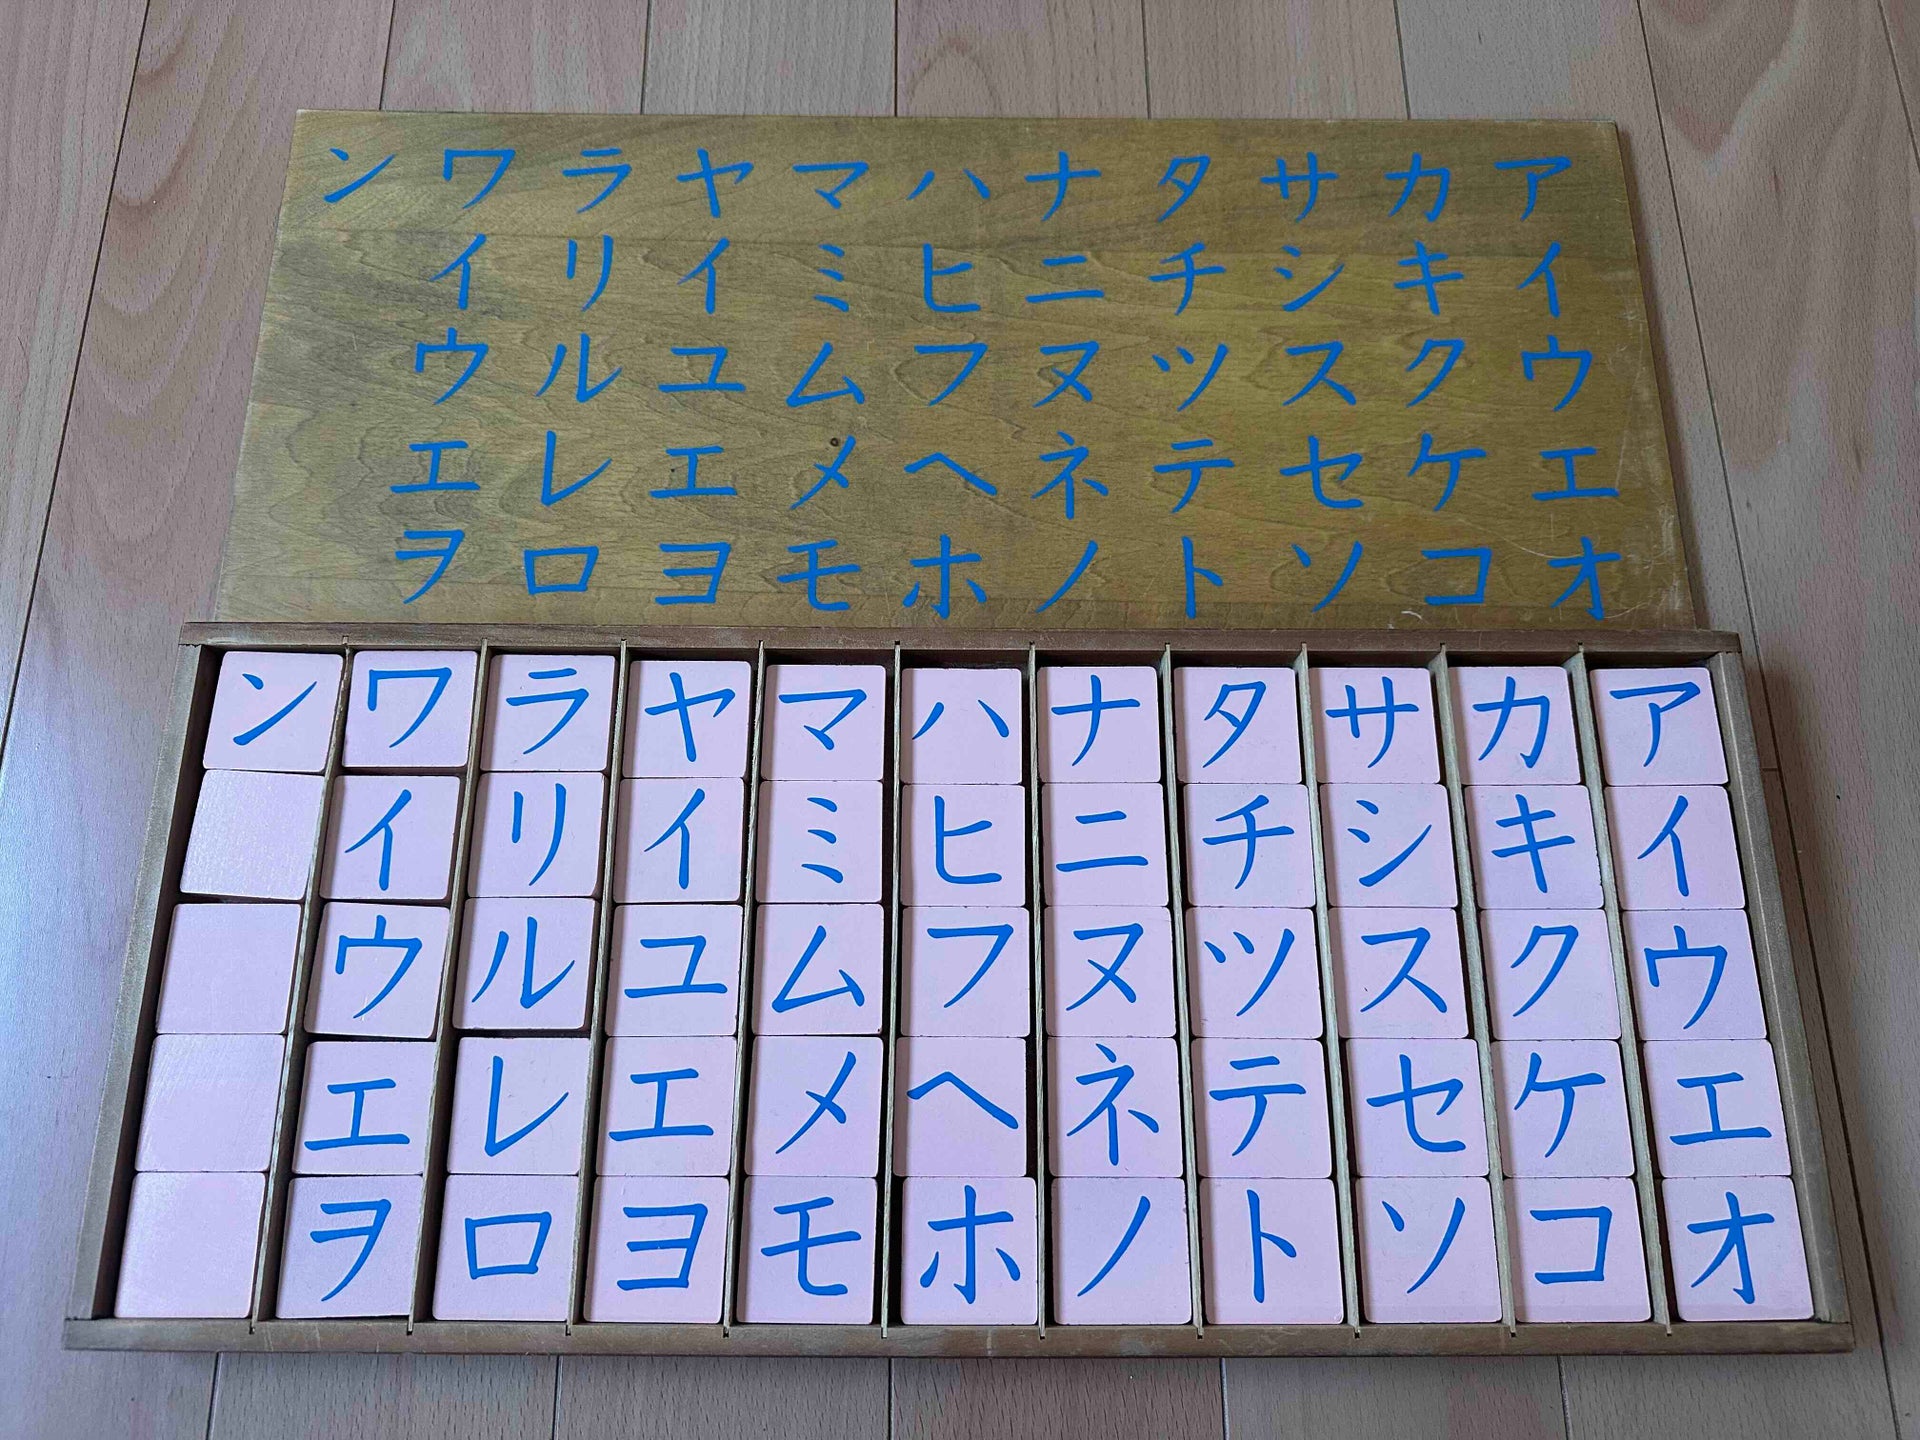 ンワラヤマハナタサカア
イリイミヒニチシキイ
ウルユムフヌツスクウ
エレエメヘネテセケエ
ヲロヨモホノトソコオ
ンワラヤマハナタサカア
イリイミヒニチシキイ
ウルユムフヌツスクウ
エレエメヘネテセケエ
ヲロヨモホノトソコオ